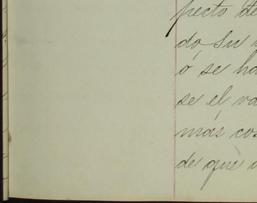 pecto de
do, su
ó se ha
se el va
más cos
de que